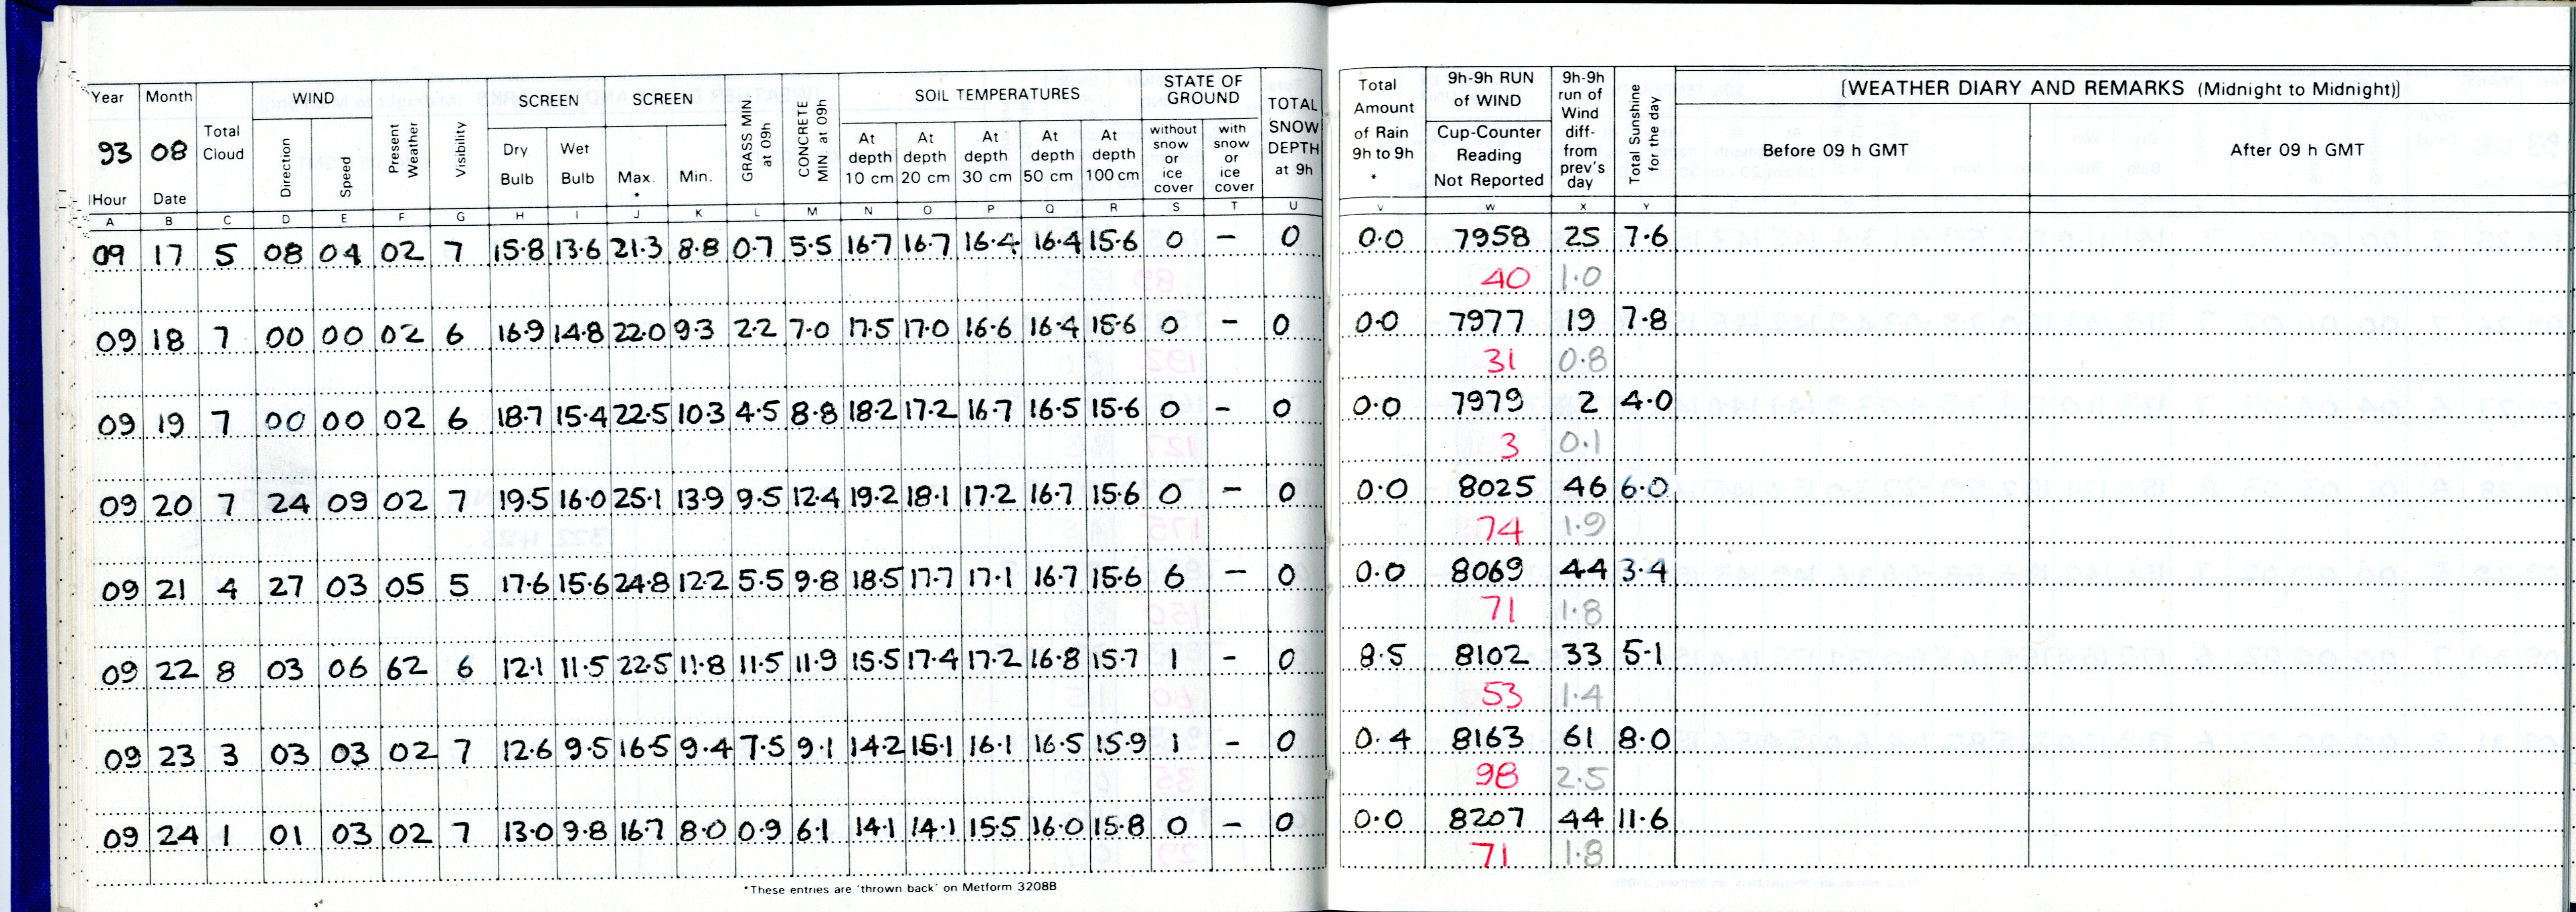 Year Month Total Cloud WIND Present Weather Visibility SCREEN SCREEN GRASS MIN at 09h CONCRETE MIN. at 09h SOIL TEMPERATURES STATE OF GROUND TOTAL SNOW DEPTH at 9h Total Amount of Rain 9h to 9h * 9h-9h RUN of WIND 9h-9h run of Wind diff- from prev's day Total Sunshine for the day [WEATHER DIARY AND REMARKS (Midnight to Midnight)]
93 08 Direction Speed Dry Bulb Wet Bulb Max. * Min. At depth 10 cm At depth 20 cm At depth 30 cm At depth 50 cm At depth 100 cm without snow or ice cover with snow or ice cover Cup-Counter Reading Not Reported Before 09 h GMT After 09 h GMT
Hour Date
A B C D E F G H I J K L M N O P Q R S T U V W X Y
09 17 5 08 04 02 7 15.8 13.6 21.3 8.8 0.7 5.5 16.7 16.7 16.4 16.4 15.6 0 – 0 0.0 7958 25 7.6
40 1.0
09 18 7 00 00 02 6 16.9 14.8 22.0 9.3 2.2 7.0 17.5 17.0 16.6 16.4 15.6 0 – 0 0.0 7977 19 7.8
31 0.8
09 19 7 00 00 02 6 18.7 15.4 22.5 10.3 4.5 8.8 18.2 17.2 16.7 16.5 15.6 0 – 0 0.0 7979 2 4.0
3 0.1
09 20 7 24 09 02 7 19.5 16.0 25.1 13.9 9.5 12.4 19.2 18.1 17.2 16.7 15.6 0 – 0 0.0 8025 46 6.0
74 1.9
09 21 4 27 03 05 5 17.6 15.6 24.8 12.2 5.5 9.8 18.5 17.7 17.1 16.7 15.6 6 – 0 0.0 8069 44 3.4
71 1.8
09 22 8 03 06 62 6 12.1 11.5 22.5 11.8 11.5 11.9 15.5 17.4 17.2 16.8 15.7 1 – 0 8.5 8102 33 5.1
53 1.4
09 23 3 03 03 02 7 12.6 9.5 16.5 9.4 7.5 9.1 14.2 15.1 16.1 16.5 15.9 1 – 0 0.4 8163 61 8.0
98 2.5
09 24 1 01 03 02 7 13.0 9.8 16.7 8.0 0.9 6.1 14.1 14.1 15.5 16.0 15.8 0 – 0 0.0 8207 44 11.6
71 1.8
*These entries are 'thrown back' on Metform 3208B